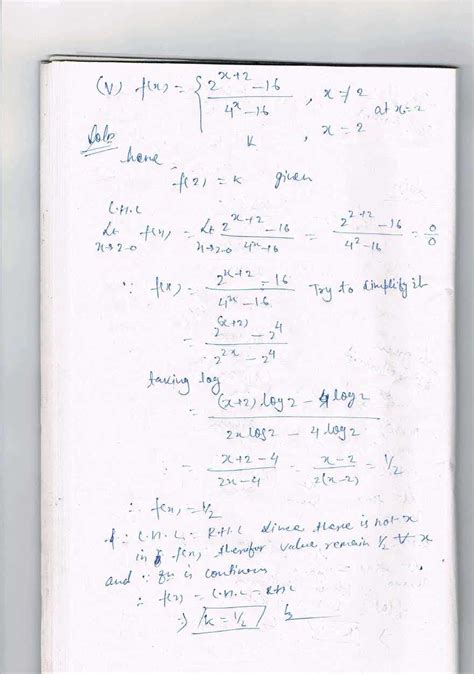 (v) f(x) = { (2^(x+2) - 16)/(4^x - 16) , x ≠ 2
k , x = 2 at x = 2
Soln
here
f(2) = k given
L.H.L
Lt x→2-0 f(x) = Lt x→2-0 (2^(x+2) - 16)/(4^x - 16) = (2^(2+2) - 16)/(4^2 - 16) = 0/0
∵ f(x) = (2^(x+2) - 16)/(4^x - 16) Try to simplify it
= (2^(x+2) - 2^4)/(2^(2x) - 2^4)
taking log
= ((x+2) log 2 - 4 log 2)/(2x log 2 - 4 log 2)
= (x+2-4)/(2x-4) = (x-2)/(2(x-2)) = 1/2
∴ f(x) = 1/2
∵ L.H.L = R.H.L since there is not x
in f(x) therefor value remain 1/2 ∀ x
and ∵ fn is continous
∴ f(2) = L.H.L = RHL
⇒ k = 1/2